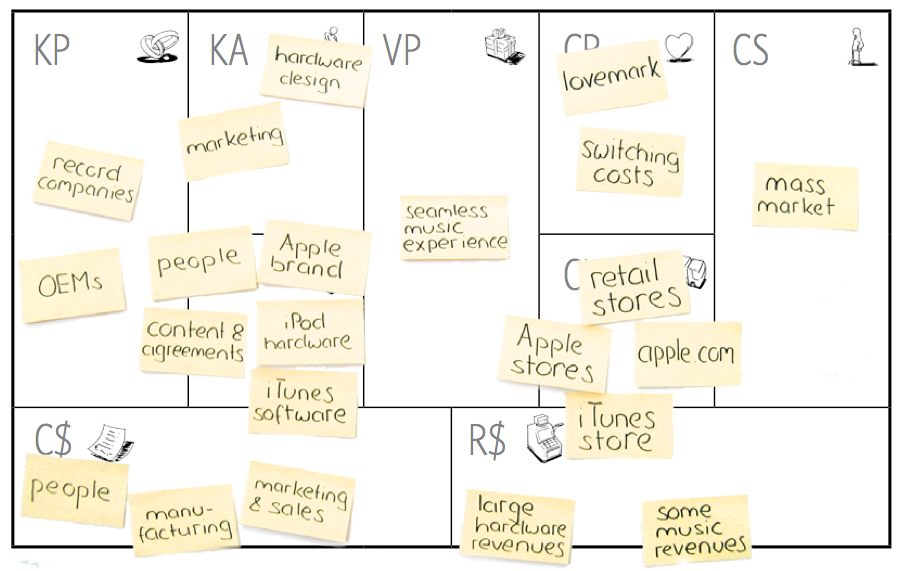 KP
KA
VP
CS
hardware
design
marketing
record
companies
OEMs
people
Apple
brand
content &
agreements
iPod
hardware
iTunes
software
seamless
music
experience
lovemark
switching
costs
retail
stores
Apple
stores
apple.com
iTunes
store
mass
market
C$
people
manu-
facturing
marketing
& sales
R$
large
hardware
revenues
some
music
revenues